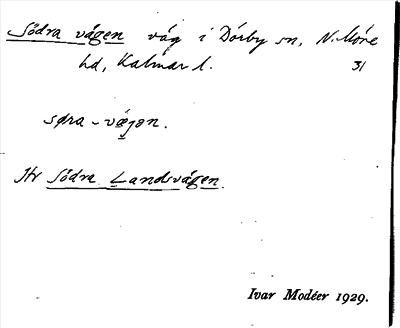 Södra vägen väg i Dörby sn, N. Möre
hd, Kalmar l. 31
søra-væjen.
Hr Södra Landsvägen.
Ivar Modéer 1929.